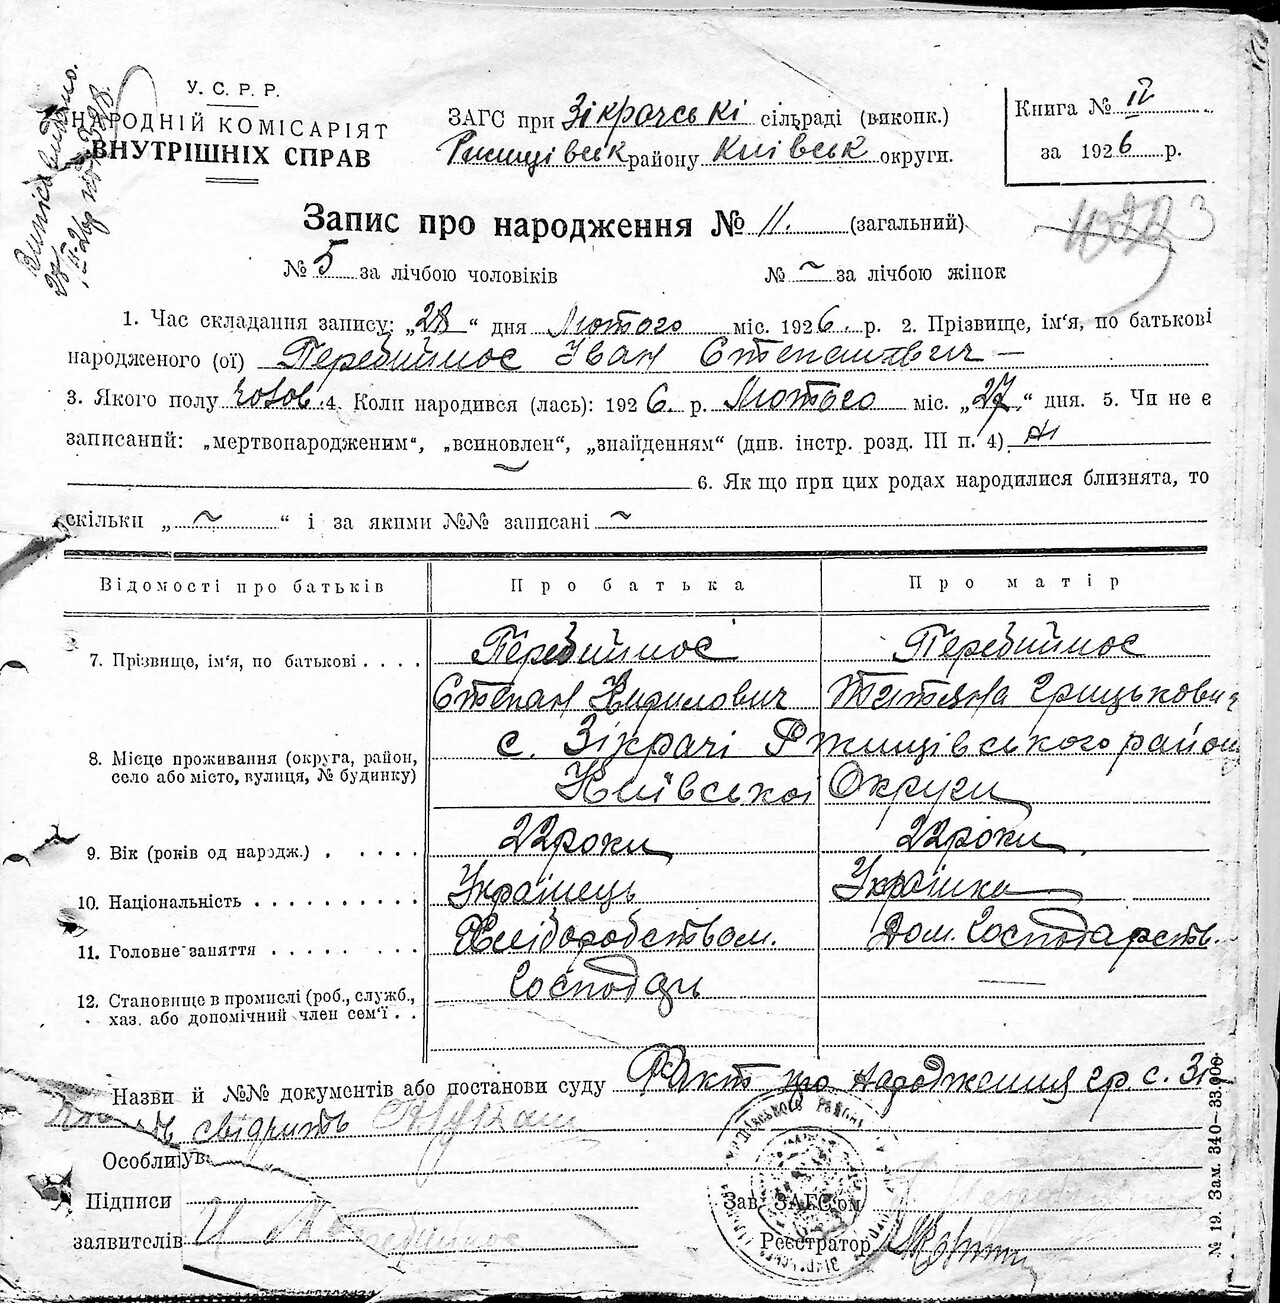 У. С. Р. Р.
НАРОДНІЙ КОМІСАРІЯТ
ВНУТРІШНІХ СПРАВ
ЗАГС при Зікрачські сільраді (виконк.)
Ржищівськ району Київськ округи.
Книга № IV
за 1926 р.
Запис про народження № 11. (загальний)
№ 5 за лічбою чоловіків № ~ за лічбою жінок
1. Час складання запису: „28“ дня Лютого міс. 1926. р. 2. Прізвище, ім'я, по батькові
народженого (ої) Перебийнос Іван Степанович —
3. Якого полу чолов. 4. Коли народився (лась): 1926. р. Лютого міс. „27.“ дня. 5. Чи не є
записаний: „мертвонародженим“, „всиновлен“, „знайденням“ (див. інстр. розд. III п. 4) Ні
~ 6. Як що при цих родах народилися близнята, то
скільки „ ~ “ і за якими №№ записані ~
Відомості про батьків Про батька Про матір
7. Прізвище, ім'я, по батькові . . . . Перебийнос Перебийнос
Степан Кирилович Татяна Грицькович
8. Місце проживання (округа, район, село або місто, вулиця, № будинку) с. Зікрачі Ржищівського район
Київської Округи
9. Вік (років од народж.) . . . . . 22 роки 22 роки
10. Національність . . . . . . . . . . Українець Українка
11. Головне заняття . . . . . . . . Хліборобством. Дом. Господарств.
12. Становище в промислі (роб., служб., хаз. або допомічний член сем'ї . . Господарь —
Назви й №№ документів або постанови суду Факт про народження гр. с. Зі-
свідчить
Особли ув.
Підписи Зав. ЗАГС'ом
заявителів Реєстратор
№ 19. Зам. 340—33.000